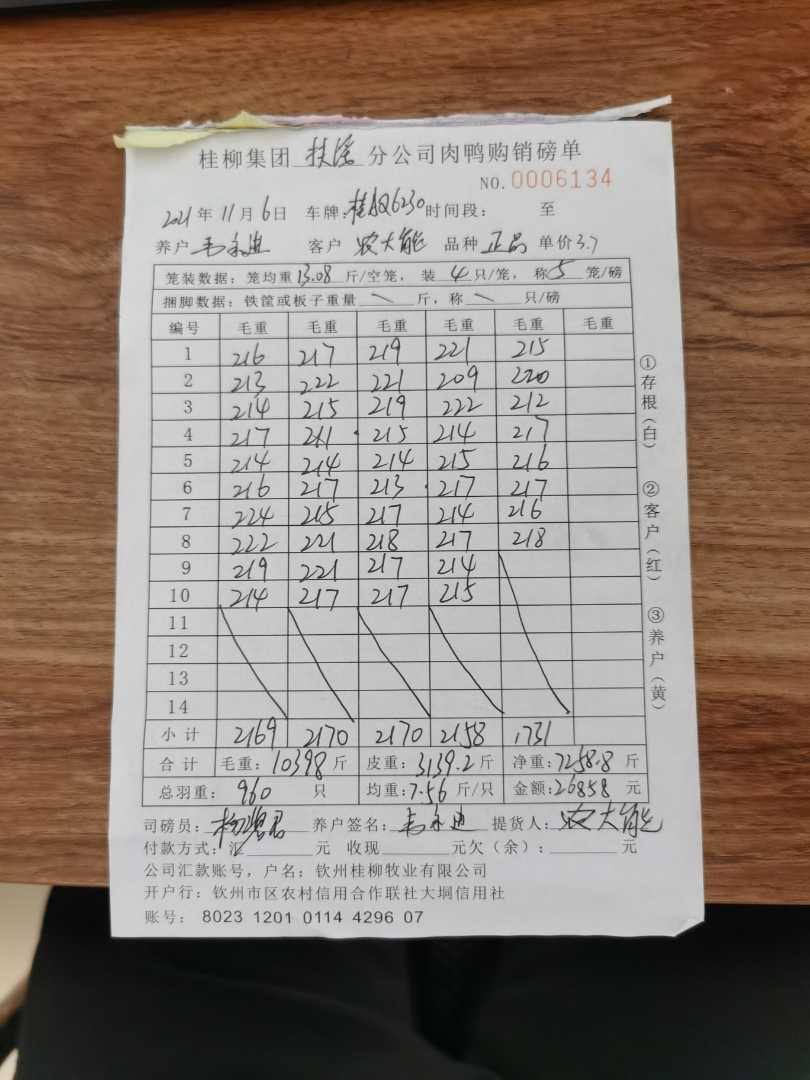 桂柳集团 扶绥 分公司肉鸭购销磅单
NO.0006134
2021年11月6日 车牌:桂 6230 时间段: 至
养户 韦永进 客户 农大能 品种 正品 单价3.7
笼装数据:笼均重13.08斤/空笼,装4只/笼,称5笼/磅
捆脚数据:铁筐或板子重量\斤,称\只/磅
编号 毛重 毛重 毛重 毛重 毛重 毛重
1 216 217 219 221 215
2 213 222 221 209 220
3 214 215 219 222 212
4 217 211 215 214 217
5 214 214 214 215 216
6 216 217 213 217 217
7 224 215 217 214 216
8 222 221 218 217 218
9 219 221 217 214
10 214 217 217 215
11
12
13
14
小计 2169 2170 2170 2158 1731
合计 毛重:10398斤 皮重:3139.2斤 净重:7258.8斤
总羽重: 960 只 均重:7.56斤/只 金额:26858元
司磅员: 养户签名:韦永进 提货人:农大能
付款方式:汇 元 收现 元欠(余): 元
公司汇款账号,户名:钦州桂柳牧业有限公司
开户行:钦州市区农村信用合作联社大垌信用社
账号: 8023 1201 0114 4296 07
①存根(白)
②客户(红)
③养户(黄)